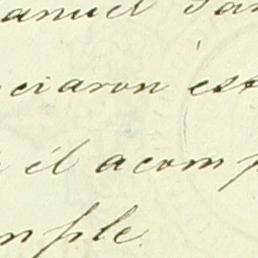 anuel San
ciaron ést
él acomp
mple.